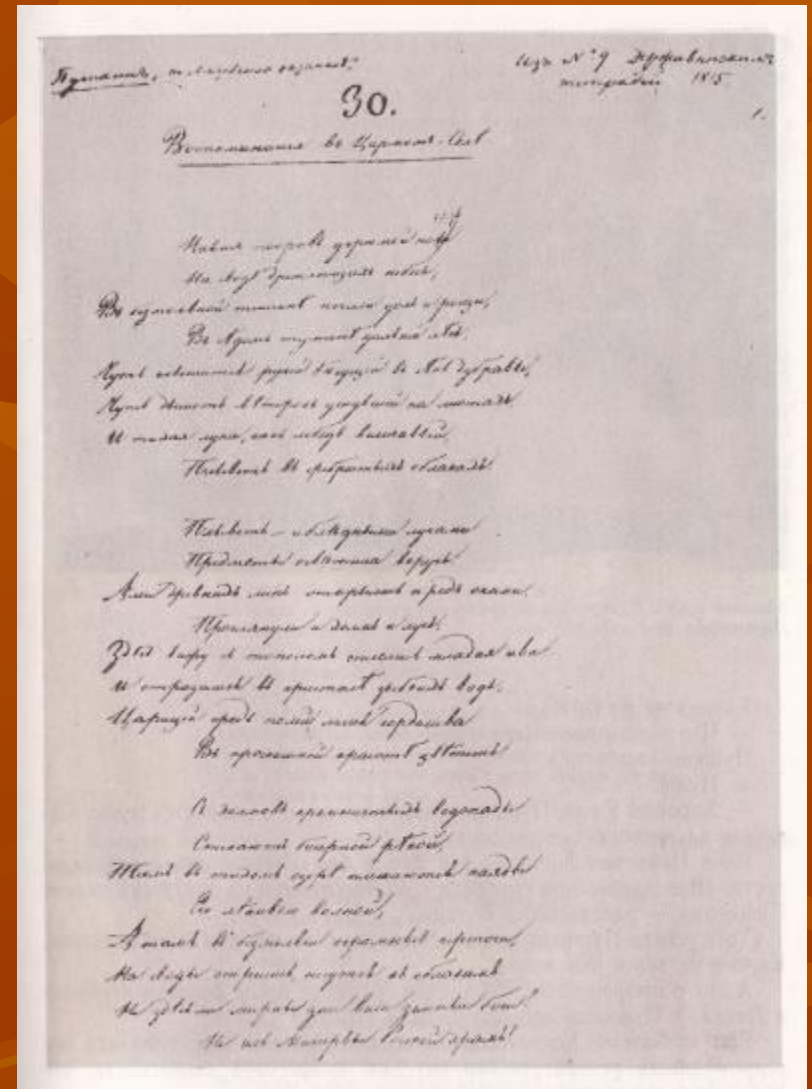 Пушкинъ,
Изъ № 9 Державинскихъ
тетрадей 1815
30.
1.
Воспоминанія въ Царскомъ-Селѣ
Навис покровъ угрюмой нощи
На сводѣ дремлющихъ небесъ,
Въ безмолвной тишинѣ почили долъ и рощи,
Въ сѣдомъ туманѣ дальній лѣсъ,
Чуть слышится ручей бѣгущій въ сѣнь дубравы,
Чуть дышитъ вѣтерокъ уснувшій на листахъ
И тихая луна, какъ лебедь величавый,
Плыветъ въ сребристыхъ облакахъ.
Плыветъ — и блѣдными лучами
Предметы освѣтила вдругъ.
Алеи древнихъ липъ открылись предъ очами,
Проглянули и холмъ и лугъ,
Здѣсь вижу съ тополомъ сплелась младая ива
И отразилась въ кристалѣ зыбкихъ водъ,
Царицей средь полей лилея горделива
Въ роскошной красотѣ цвѣтетъ
Съ холмовъ кремнистыхъ водопады
Стекаютъ бисерной рѣкой,
Тамъ въ тихомъ озерѣ плескаются наяды
Его лѣнивою волной,
А тамъ въ безмолвіи огромные чертоги,
На своды опершись, несутся къ облакамъ
Не здѣсь ли мирны дни вели земные боги?
Не се ль Минервы Росской храмъ!